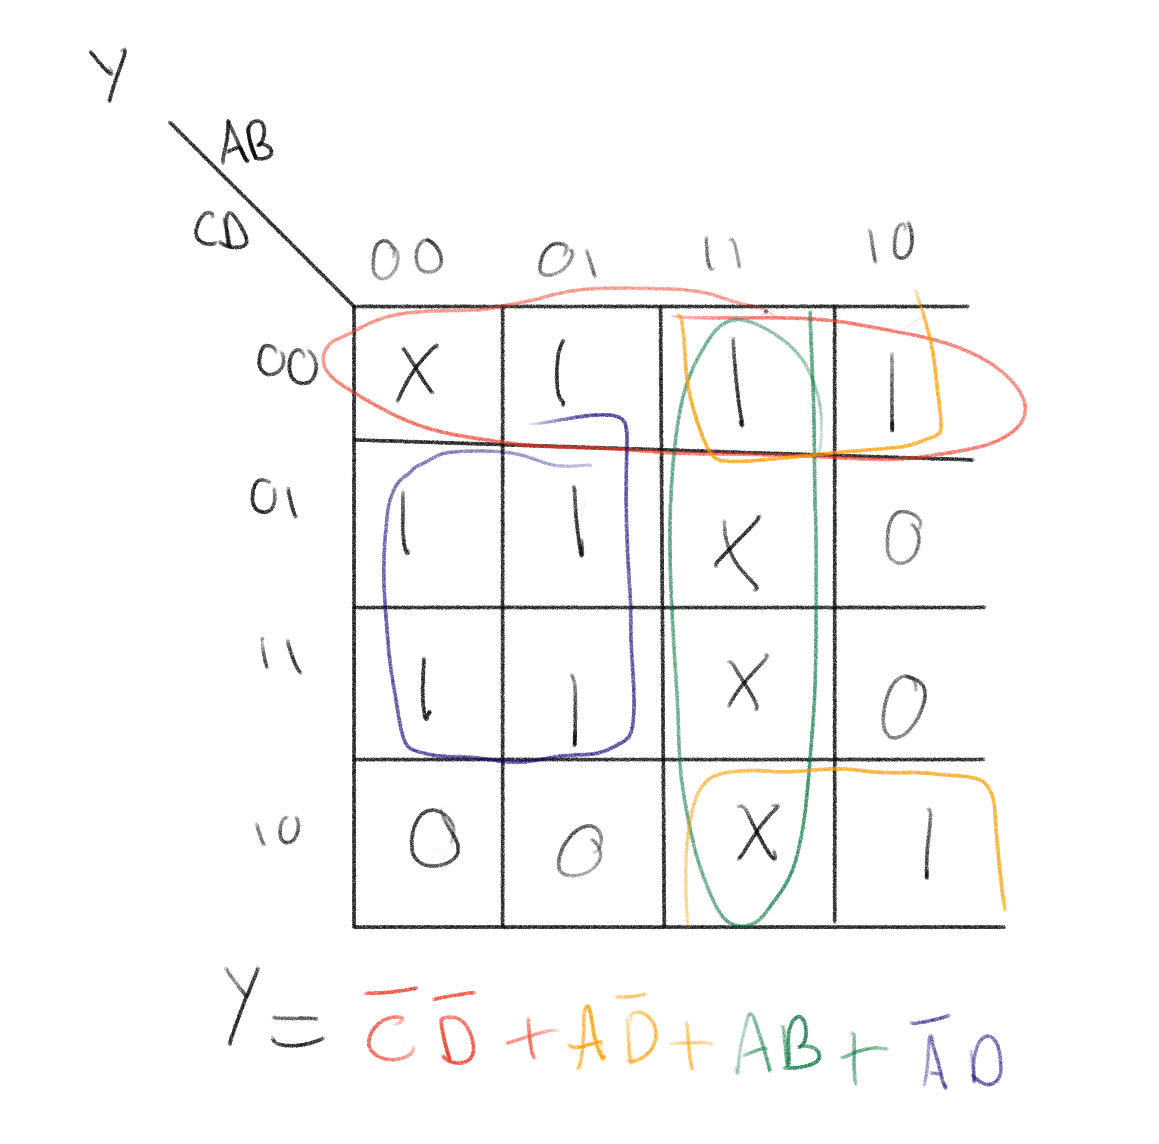 Y
AB
CD
00 01 11 10
00 X 1 1 1
01 1 1 X 0
11 1 1 X 0
10 0 0 X 1
Y = C̅ D̅ + A D̅ + A B + A̅ D